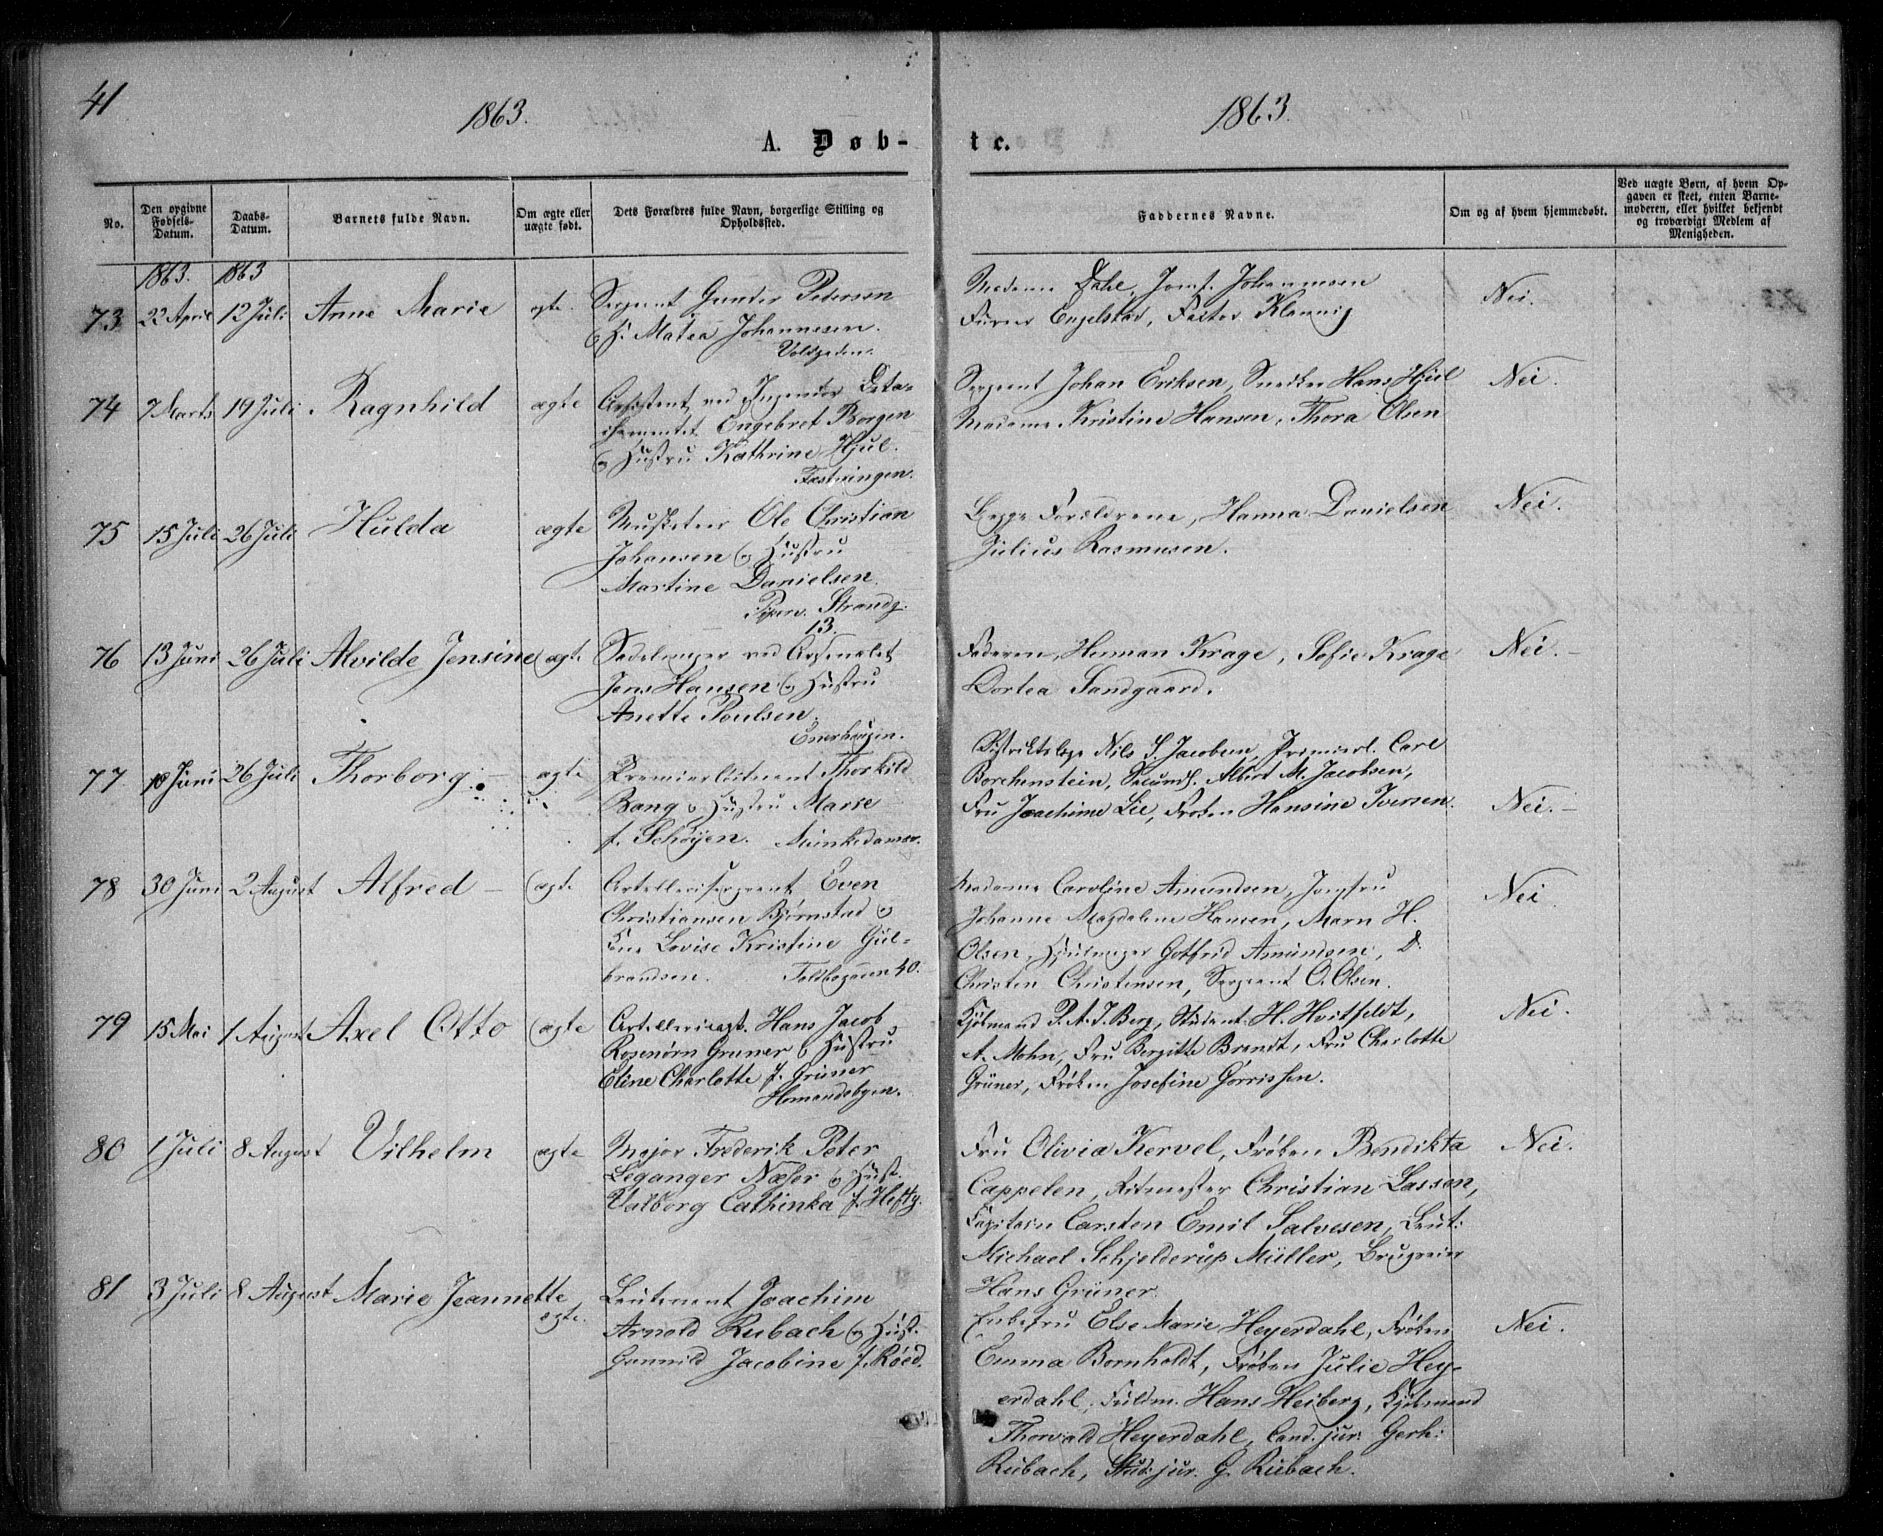 41
1863.
1863.
A. Døb-
te.
No.
Den opgivne Fødsels-Datum.
Daabs-Datum.
Barnets fulde Navn.
Om ægte eller uægte født.
Dets Forældres fulde Navn, borgerlige Stilling og Opholdssted.
Faddernes Navne.
Om og af hvem hjemmedøbt.
Ved uægte Børn, af hvem Opgaven er skeet, enten Barnemoderen, eller hvilket bekjendt og troværdigt Medlem af Menigheden.
1863. 1863
73 22 April 12 Juli Anne Marie ægte. Sergeant Gunder Petersen
& H. Matea Johannessen.
Voldgaden.
Madame Dahl, Jomf. Johannesen
Furer Engelstad, Factor
Nei.
74 7 Marts 19 Juli Ragnhild ægte Assistent ved Ingeniør Deta-
chementet Engebret Borgen
& Hustru Kathrine Hjul.
Fæstningen.
Sergeant Johan Eriksen, Snedker Hans Hjul
Madame Kristine Hansen, Thora Olsen
Nei.
75 15 Juli 26 Juli Hulda ægte Musketeer Ole Christian
Johansen & Hustru
Martine Danielsen.
Piperv. Strandg.
13.
Begge Forældrene, Hanna Danielsen
Julius Rasmussen.
Nei.
76 13 Juni 26 Juli Alvilde Jensine ægte Sadelmager ved Arsenalet
Jens Hansen & Hustru
Anette Poulsen.
Enerhaugen.
Faderen, Herman Krage, Sofie Krage
Dortea Sandgaard.
Nei.
77 18 Juni 26 Juli Thorborg. ægte Premierlieutnant Thorkild
Bang & Hustru Marie
f. Schøyen. Munkedamsv.
Distriktslæge Nils S. Jacobsen, Premierl. Carl
Borchenstein, Secundl. Albert M. Jacobsen,
Fru Joachime Lie, Frøken Hansine Iversen.
Nei.
78 30 Juni 2 August Alfred ægte Artillerisergeant Even
Christiansen Bjørnstad &
Lovise Kristine Gul-
brandsen. 40.
Madame Caroline Amundsen, Jomfru
Johanne Magdalene Hansen, Maren H.
Olsen, Hjulmager Gotfrid Amundsen, D.
Christen Christensen, Sergeant O. Olsen.
Nei
79 15 Mai 1 August Axel Otto ægte Hans Jacob
Rosenørn Gruner & Hustru
Eline Charlotte f. Grüner
Homandsbyen.
Kjøbmand P. A. J. Berg, Student H. Hvitfeldt,
A. Mohn, Fru Bergitte Brandt, Fru Charlotte
Grüner, Frøken Josefine Gørrissen.
Nei.
80 1 Juli 8 August Vilhelm ægte Major Frederik Peter
Leganger Næser & Hust.
Valborg Cathinka f. Hefty.
Fru Olivia Kervel, Frøken Bendikta
Cappelen, Ritmester Christian Lassen,
Capitain Carsten Emil Salvesen, Leut:
Michael Schjelderup Müller, Brugseier
Hans Grüner.
Nei.
81 3 Juli 8 August Marie Jeannette ægte. Leutenant Joachim
Arnold Rubach & Hust.
Gunnild Jacobine f. Röed.
Enkefru Else Marie Heyerdahl, Frøken
Emma Bornholdt, Frøken Julie Hey-
erdahl, Fuldm. Hans Heiberg, Kjøbmand
Thorvald Heyerdahl, Cand. jur. Gerh:
Rubach, Stud. jur. G. Rubach.
Nei.